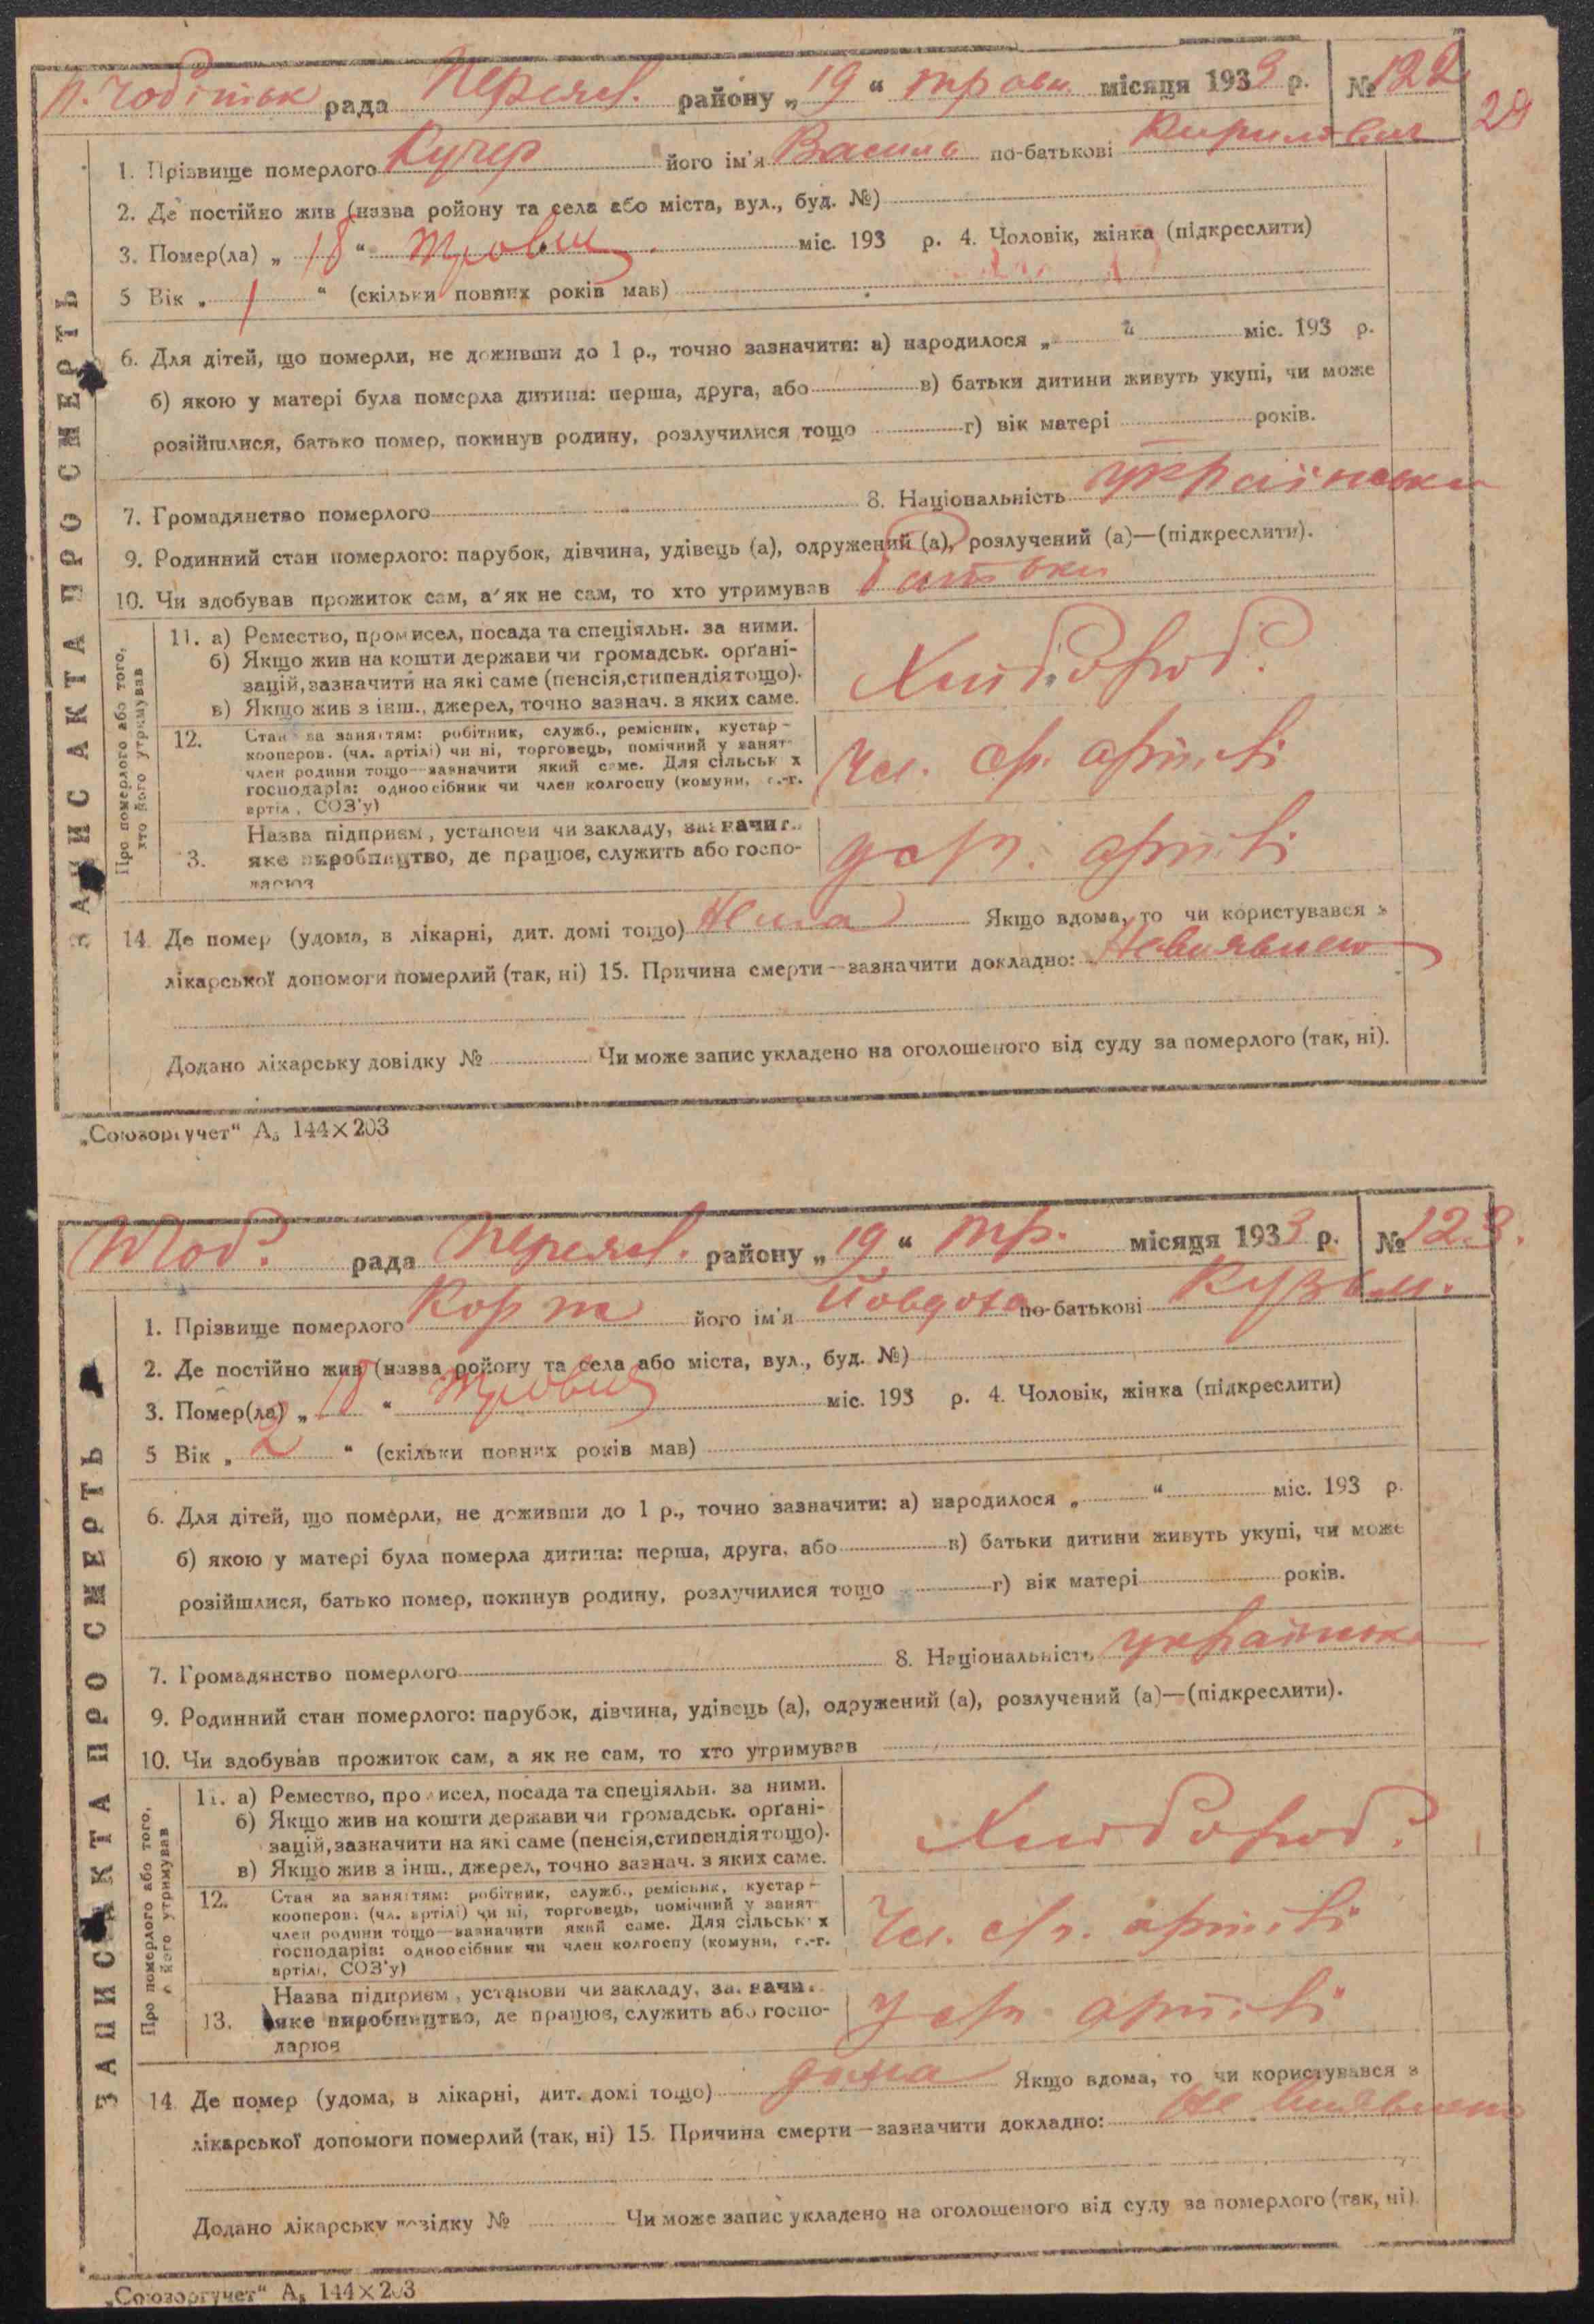 рада Переясл. району „ 19 “ травн. місяця 1933 р. № 122
29
1. Прізвище померлого Кучер його ім'я Василь по-батькові Кирилович
2. Де постійно жив (назва ройону та села або міста, вул., буд. №)
3. Помер(ла) „ 18 “ травня міс. 193 р. 4. Чоловік, жінка (підкреслити)
5 Вік „ 1 “ (скільки повних років мав)
6. Для дітей, що померли, не доживши до 1 р., точно зазначити: а) народилося „ “ міс. 193 р.
б) якою у матері була померла дитина: перша, друга, або в) батьки дитини живуть укупі, чи може
розійшлися, батько помер, покинув родину, розлучилися тощо г) вік матері років.
7. Громадянство померлого 8. Національність українська
9. Родинний стан померлого: парубок, дівчина, удівець (а), одружений (а), розлучений (а)—(підкреслити).
10. Чи здобував прожиток сам, а як не сам, то хто утримував батьки
ЗАПИС АКТА ПРО СМЕРТЬ
Про померлого або того, хто його утримував
11. а) Ремество, промисел, посада та спеціяльн. за ними.
б) Якщо жив на кошти держави чи громадськ. орґані-
зацій, зазначити на які саме (пенсія, стипендія тощо).
в) Якщо жив з інш., джерел, точно зазнач. з яких саме.
Хлібороб.
12. Стан за заняттям: робітник, служб., ремісник, кустар -
кооперов. (чл. артілі) чи ні, торговець, помічний у занят
член родини тощо—зазначити який саме. Для сільськ х
господарів: одноосібник чи член колгоспу (комуни, с.-г.
артіл, СОЗ'у)
Чл. с/г. артілі
3. Назва підприєм, установи чи закладу, зазначит
яке виробництво, де працює, служить або госпо-
дарює
У с/г. артілі
14. Де помер (удома, в лікарні, дит. домі тощо) Якщо вдома, то чи користувався з
лікарської допомоги померлий (так, ні) 15. Причина смерти—зазначити докладно: Невиявлено
Додано лікарську довідку № Чи може запис укладено на оголошеного від суду за померлого (так, ні).
„Союзоргучет“ А₅ 144×203
рада Переясл. району „ 19 “ тр. місяця 1933 р. № 123.
1. Прізвище померлого Корж його ім'я Йовдоха по-батькові Кузьм.
2. Де постійно жив (назва ройону та села або міста, вул., буд. №)
3. Помер(ла) „ 18 “ травня міс. 193 р. 4. Чоловік, жінка (підкреслити)
5 Вік „ 2 “ (скільки повних років мав)
6. Для дітей, що померли, не доживши до 1 р., точно зазначити: а) народилося „ “ міс. 193 р.
б) якою у матері була померла дитина: перша, друга, або в) батьки дитини живуть укупі, чи може
розійшлися, батько помер, покинув родину, розлучилися тощо г) вік матері років.
7. Громадянство померлого 8. Національність українка
9. Родинний стан померлого: парубок, дівчина, удівець (а), одружений (а), розлучений (а)—(підкреслити).
10. Чи здобував прожиток сам, а як не сам, то хто утримував
ЗАПИС АКТА ПРО СМЕРТЬ
Про померлого або того, його утримував
11. а) Ремество, промисел, посада та спеціяльн. за ними.
б) Якщо жив на кошти держави чи громадськ. орґані-
зацій, зазначити на які саме (пенсія, стипендія тощо).
в) Якщо жив з інш., джерел, точно зазнач. з яких саме.
Хлібороб.
12. Стан за заняттям: робітник, служб., ремісник, кустар -
кооперов. (чл. артілі) чи ні, торговець, помічний у занят
член родини тощо—зазначити який саме. Для сільськ х
господарів: одноосібник чи член колгоспу (комуни, с.-г.
артілі, СОЗ'у)
Чл. с/г. артілі
13. Назва підприєм, установи чи закладу, зазначи
яке виробництво, де працює, служить або госпо-
дарює
У с/г. артілі
14. Де помер (удома, в лікарні, дит. домі тощо) дома Якщо вдома, то чи користувався з
лікарської допомоги померлий (так, ні) 15. Причина смерти—зазначити докладно: Не виявлено
Додано лікарську довідку № Чи може запис укладено на оголошеного від суду за померлого (так, ні).
„Союзоргучет“ А₅ 144×203